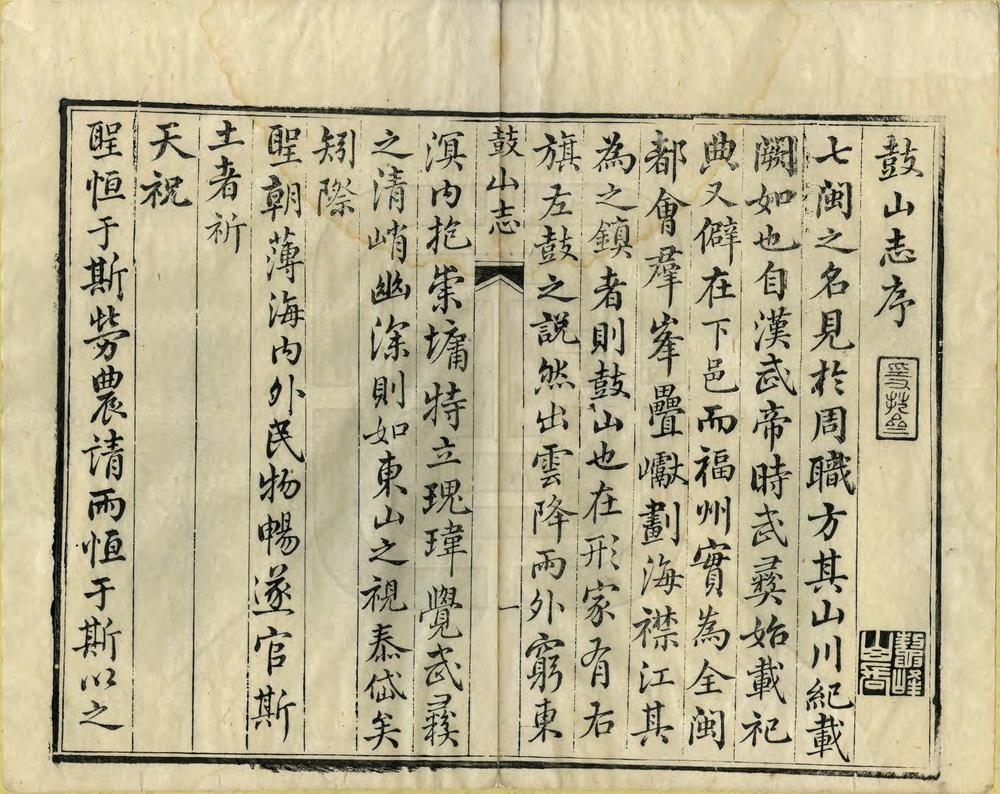 鼓山志序
七閩之名見於周職方其山川紀載
闕如也自漢武帝時武彛始載祀
典又僻在下邑而福州實為全閩
都會羣峯疊巘劃海襟江其
為之鎮者則鼓山也在形家有右
旗左鼓之說然出雲降雨外窮東
鼓山志
一
溟内抱崇墉特立瑰瑋覺武彛
之清峭幽深則如東山之視泰岱矣
矧際
聖朝薄海内外民物暢遂官斯
土者祈
天祝
聖恒于斯勞農請雨恒于斯以之